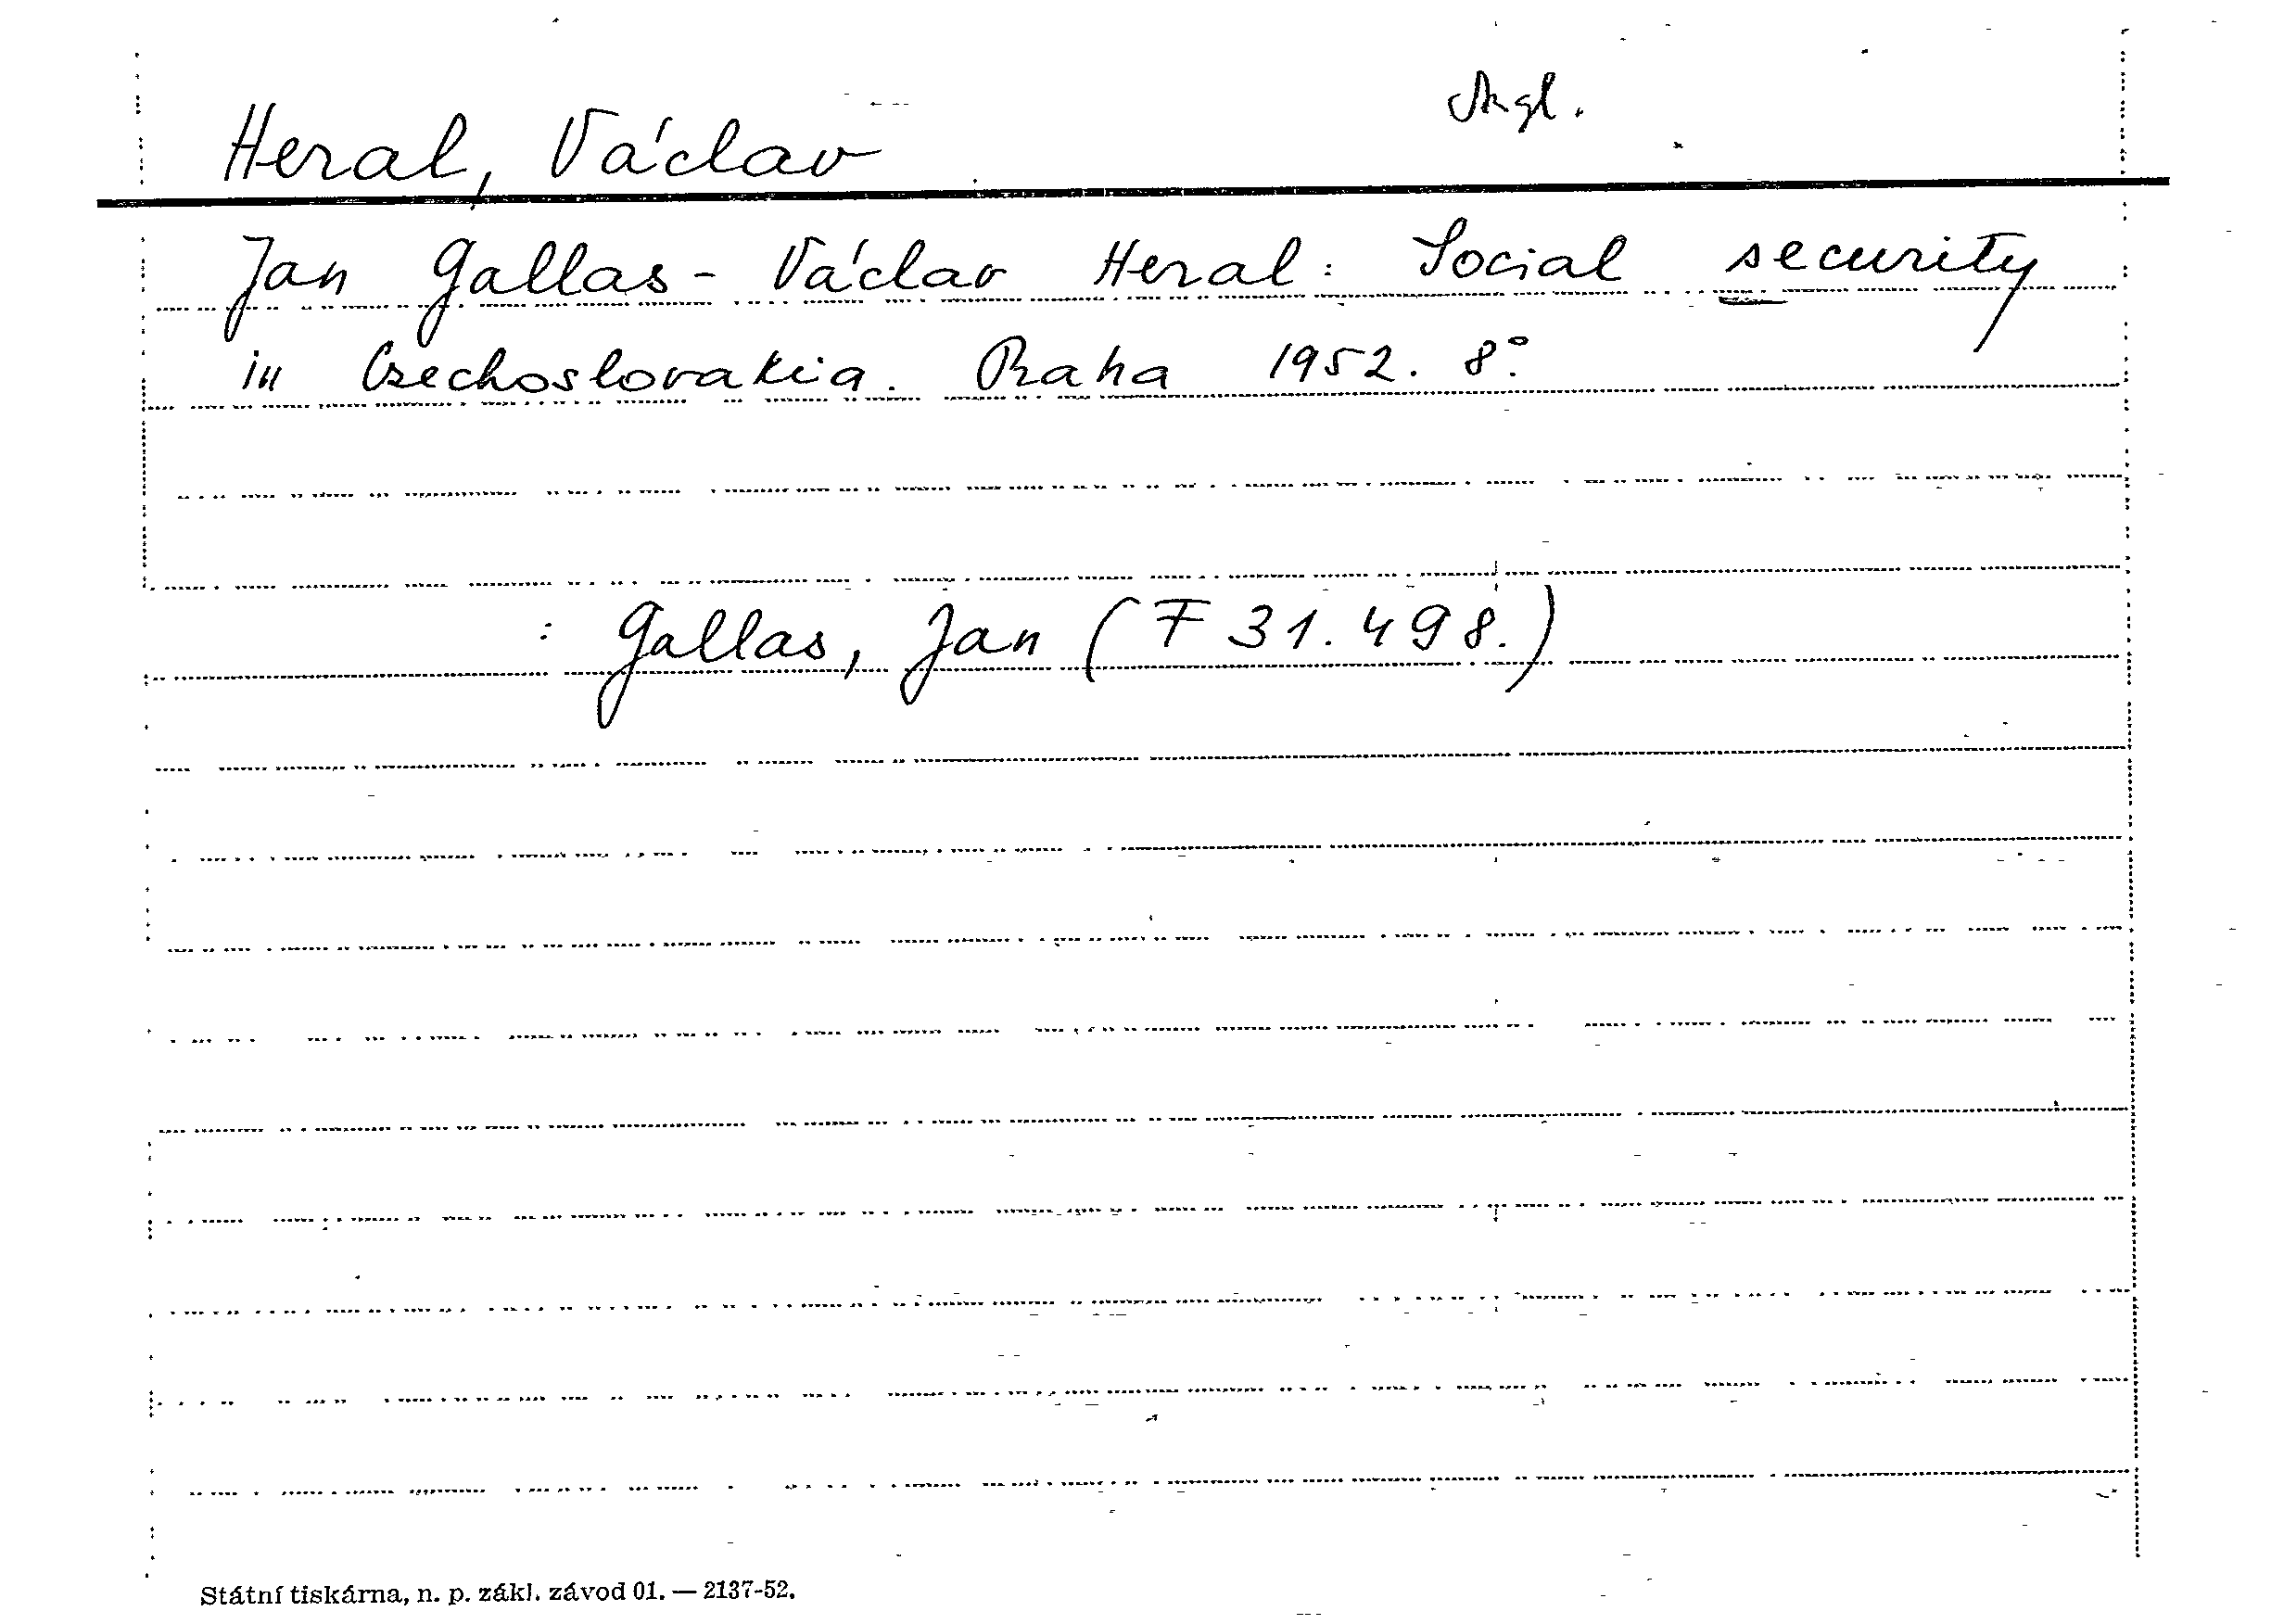 Angl.
Heral, Václav
Jan Gallas - Václav Heral: Social security
in Czechoslovakia. Praha 1952. 8°.
: Gallas, Jan (F 31.498.)
Státní tiskárna, n. p. zákl. závod 01. — 2137-52.